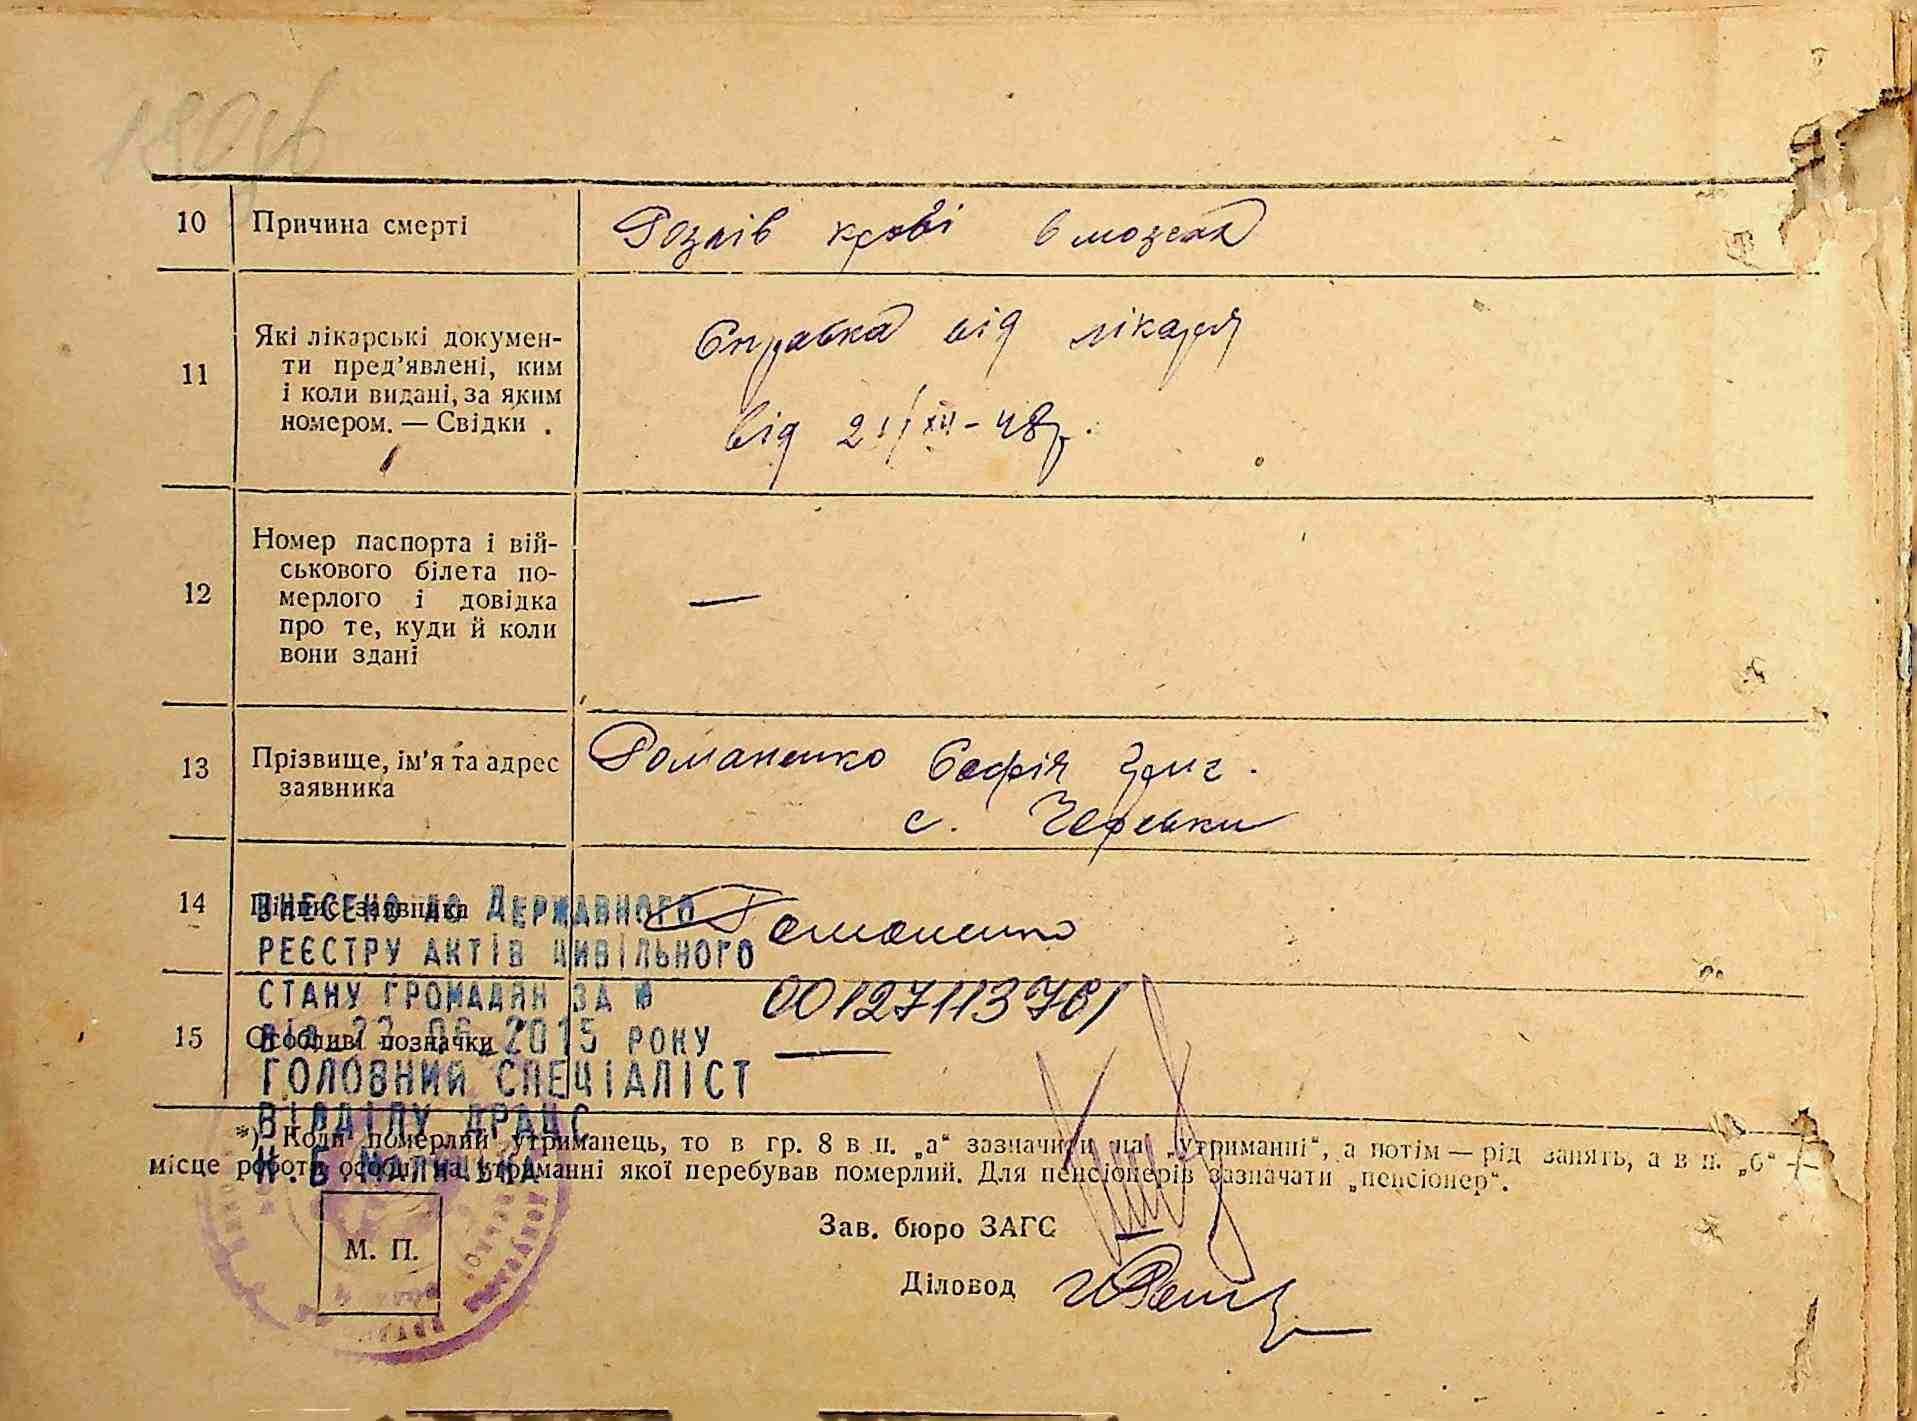 10 Причина смерті Розлив крові в мозок
11 Які лікарські докумен-
ти пред'явлені, ким
і коли видані, за яким
номером. — Свідки .
Справка від лікаря
від 21/XII - 48р.
12 Номер паспорта і вій-
ськового білета по-
мерлого і довідка
про те, куди й коли
вони здані
—
13 Прізвище, ім'я та адрес
заявника
Романенко Софія
с. Черевки
14 Підпис заявника Романенко
ВНЕСЕНО ДО ДЕРЖАВНОГО
РЕЄСТРУ АКТІВ ЦИВІЛЬНОГО
СТАНУ ГРОМАДЯН ЗА № 00127113761
15 Особливі позначки —
ВІД 2015 РОКУ
ГОЛОВНИЙ СПЕЦІАЛІСТ
ВІДДІЛУ ДРАЦС
*) Коли померлий утриманець, то в гр. 8 в п. „а“ зазначити на „утриманні“, а потім — рід занять, а в п. „б“ —
місце роботи особи, на утриманні якої перебував померлий. Для пенсіонерів зазначати „пенсіонер“.
М. П.
Зав. бюро ЗАГС
Діловод